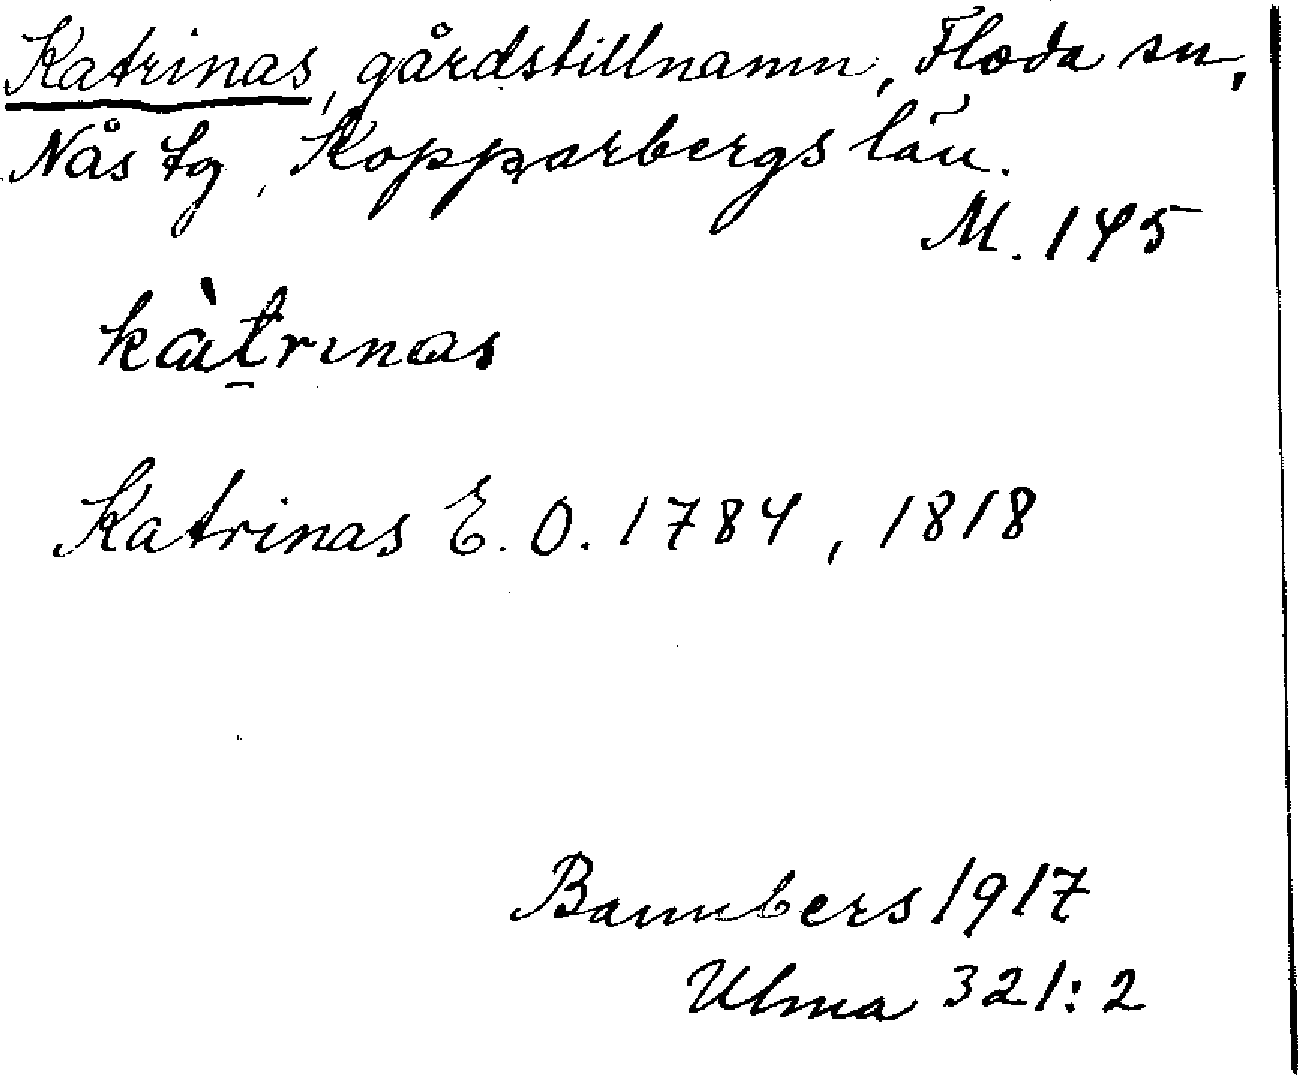 Katrinas, gårdstillnamn, Floda sn,
Nås tg, Kopparbergs län.
M. 145
kàt̠rınas
Katrinas E. O. 1784, 1818
Bannbers 1917
Ulma 321:2